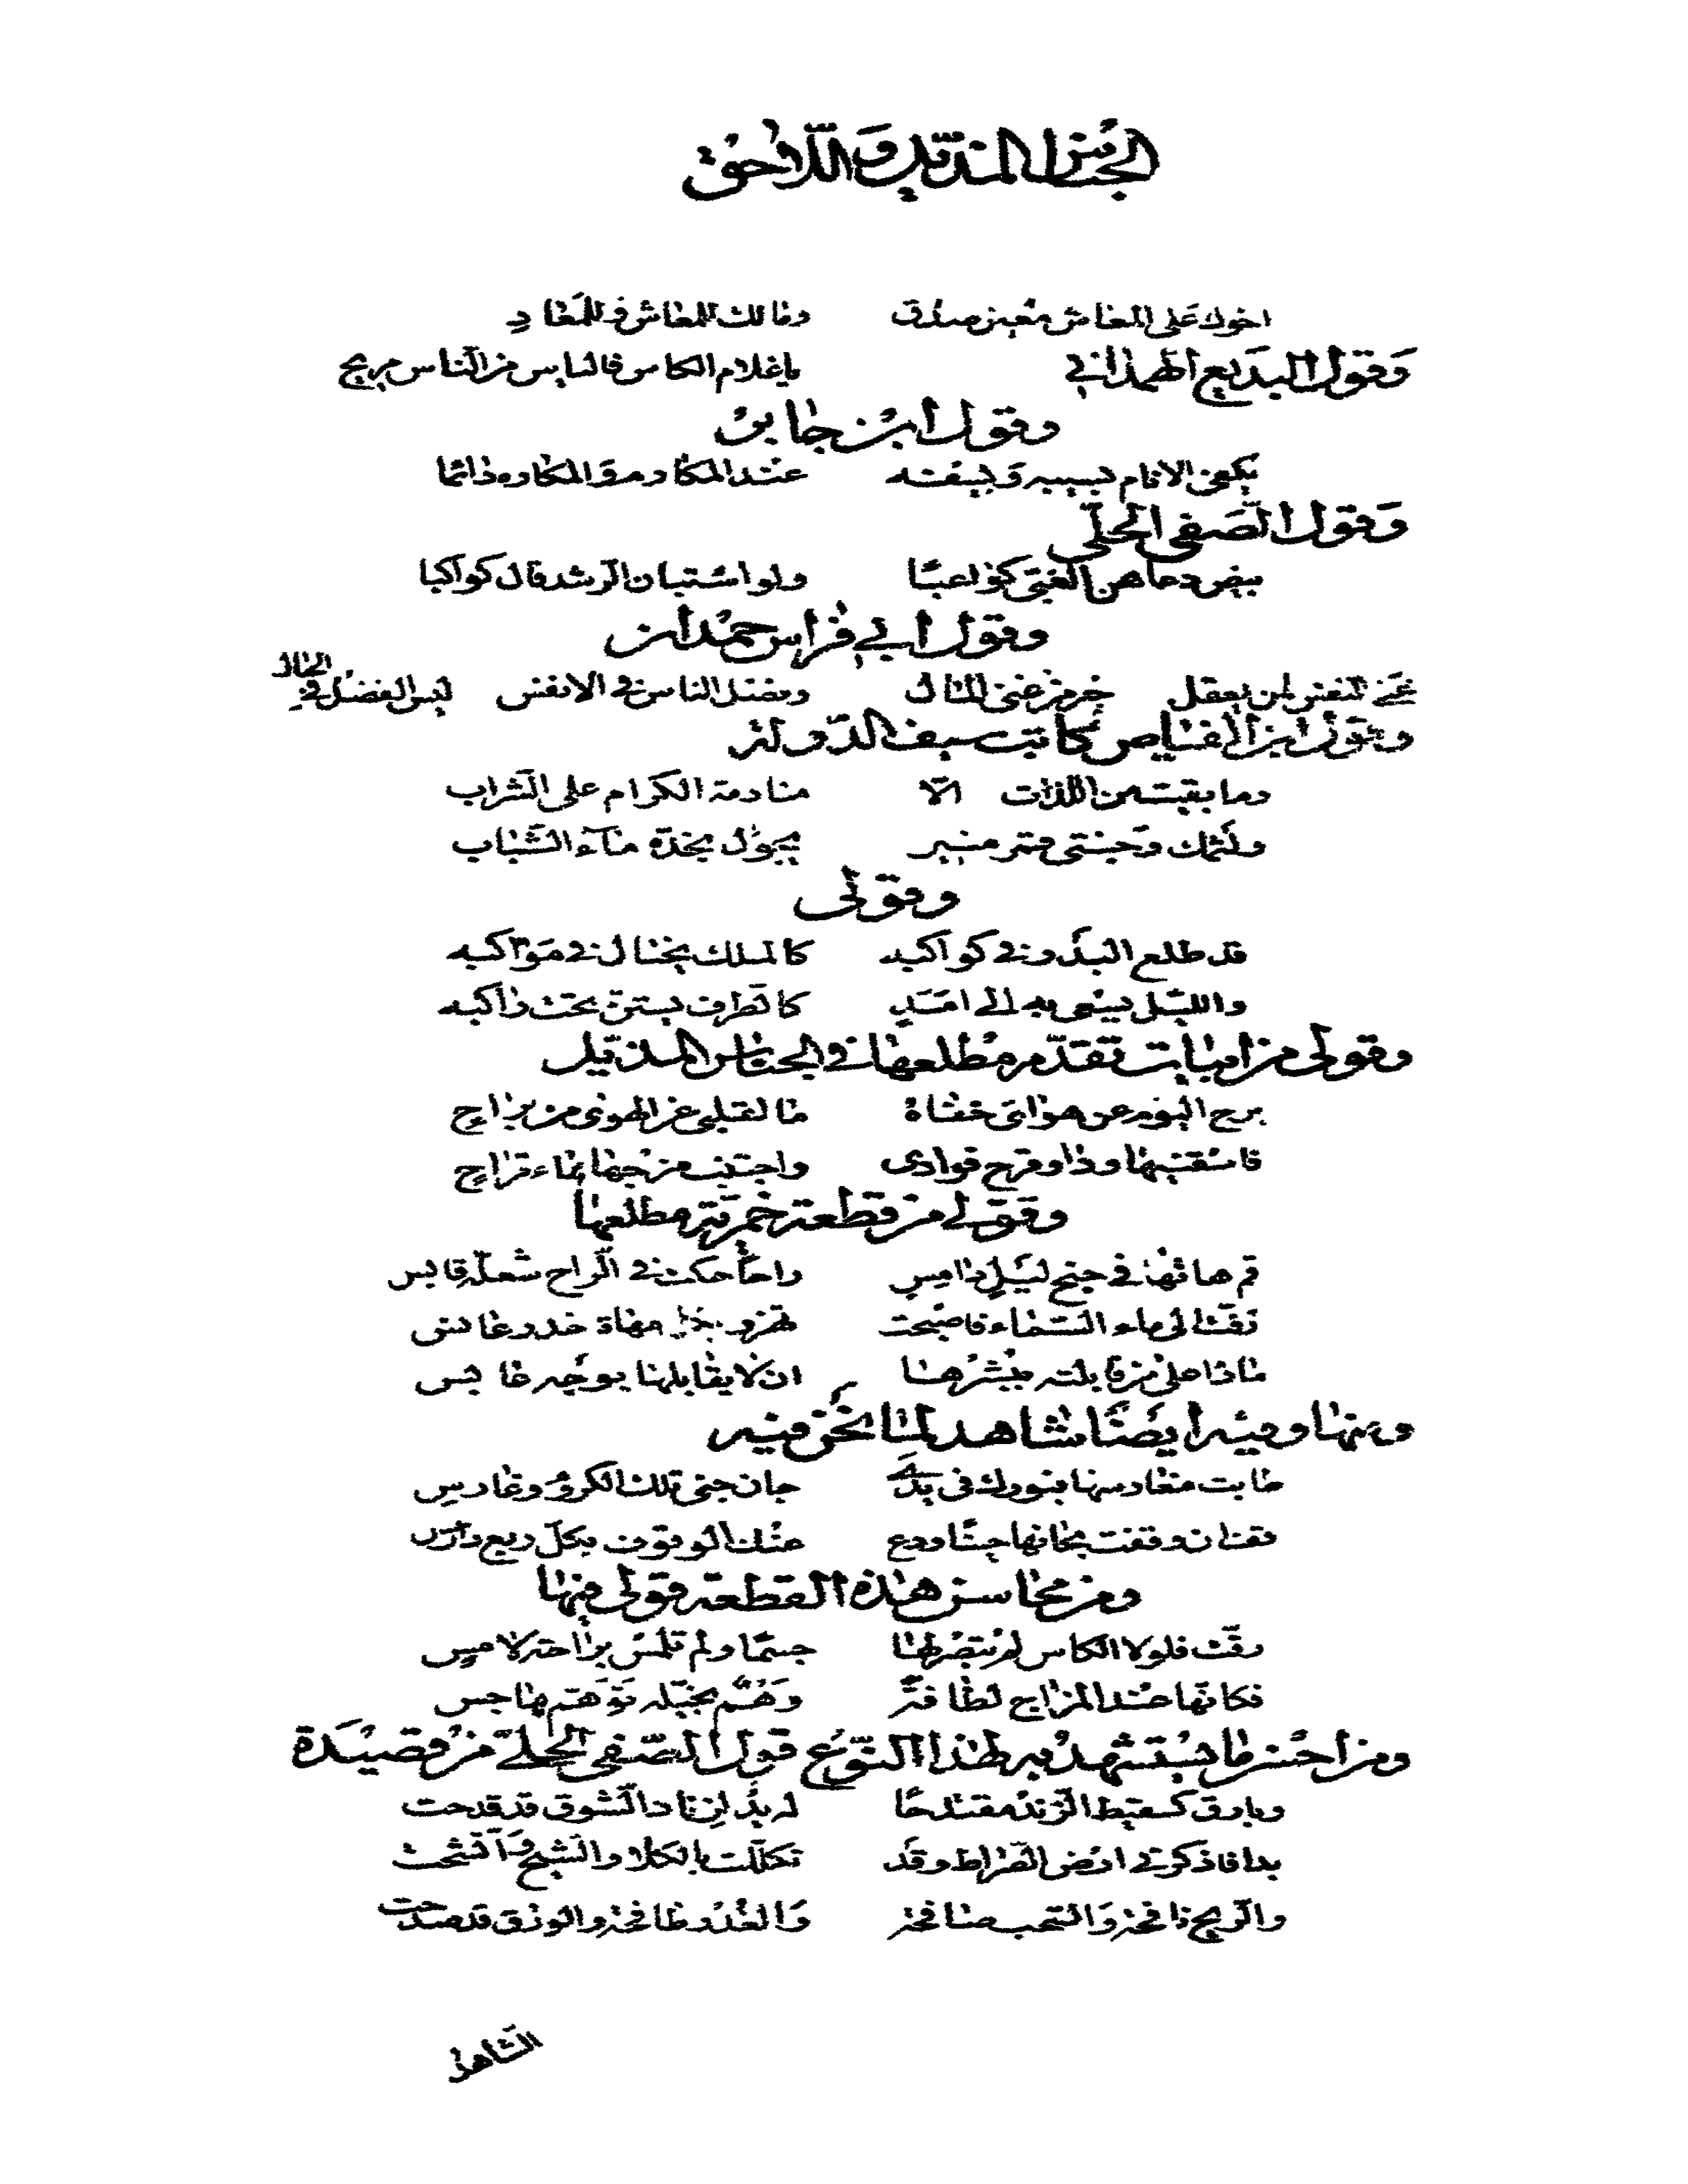 الجناس المذيل واللاحق
اخوك على المعاش معين صدق ومالك للمعاش وللمعاد
وقول البديع الهمذاني يا غلام الكاس فالياس من الناس مريح
وقول ابن جابر
يكفي الانام بسيبه وبسيفه عند المكارم والمكاره دائما
وقول الصفي الحلي
بيض دعاهن الغبي كواعبا ولو استبان الرشد قال كواكبا
وقول ابي فراس حمدان
غنى النفس لمن يعقل خير من غنى المال وفضل الناس في الانفس ليس الفضل في الحال
وقول ابن الفياض كاتب سيف الدولة
وما بقيت من اللذات الا منادمة الكرام على الشراب
ولثمك وجنتي قمر منير يجول بخده ماء الشباب
وقولى
قد طلع البدر في كواكبه كالملك يختال في مواكبه
والليل يسعى به الى امد كالطرف يستن تحت راكبه
وقولى من ابيات تقدم مطلعها في الجناس المذيل
برح اليوم عن هواى خفاه ما لقلبي عن الهوى من براح
فاسقنيها وداو قرح فوادى واجتنب مزجها بماء قراح
وقولي من قطعة خمرية مطلعها
قم هاتها في جنح ليل دامس راحا حكت في الراح شعلة قابس
زفت الى ماء السماء فاصبحت تهزو مهاة خدر عانس
ماذا على من قابلته ببشرها ان لا يقابلها بوجه عابس
ومنها وفيه ايضا شاهد لما نحن فيه
طابت مغارسها فبورك في يدي جان جنى تلك الكروم وغارس
فقنان وقفت بحانها حينا ودع عنك الوقوف بكل ربع دارس
ومن محاسن هذه القطعة قولى فيها
رقت فلولا الكاس لم تبصر لها جسما ولم تلمس براحة لامس
فكانها عند المزاج لطافة وهم يخيله توهم هاجس
ومن احسن ما يستشهد به لهذا النوع قول الصفي الحلي من قصيدة
وبارق كسقيط الزند مقتدحا له يد لزناد الشوق قد قدحت
بدا فاذكرني ارض الصراط وقد تكللت بالكلا والشيح واتشحت
والريح نافحة والسحب سافحة والغدر طافحة والورق قد صدحت
الشاهد